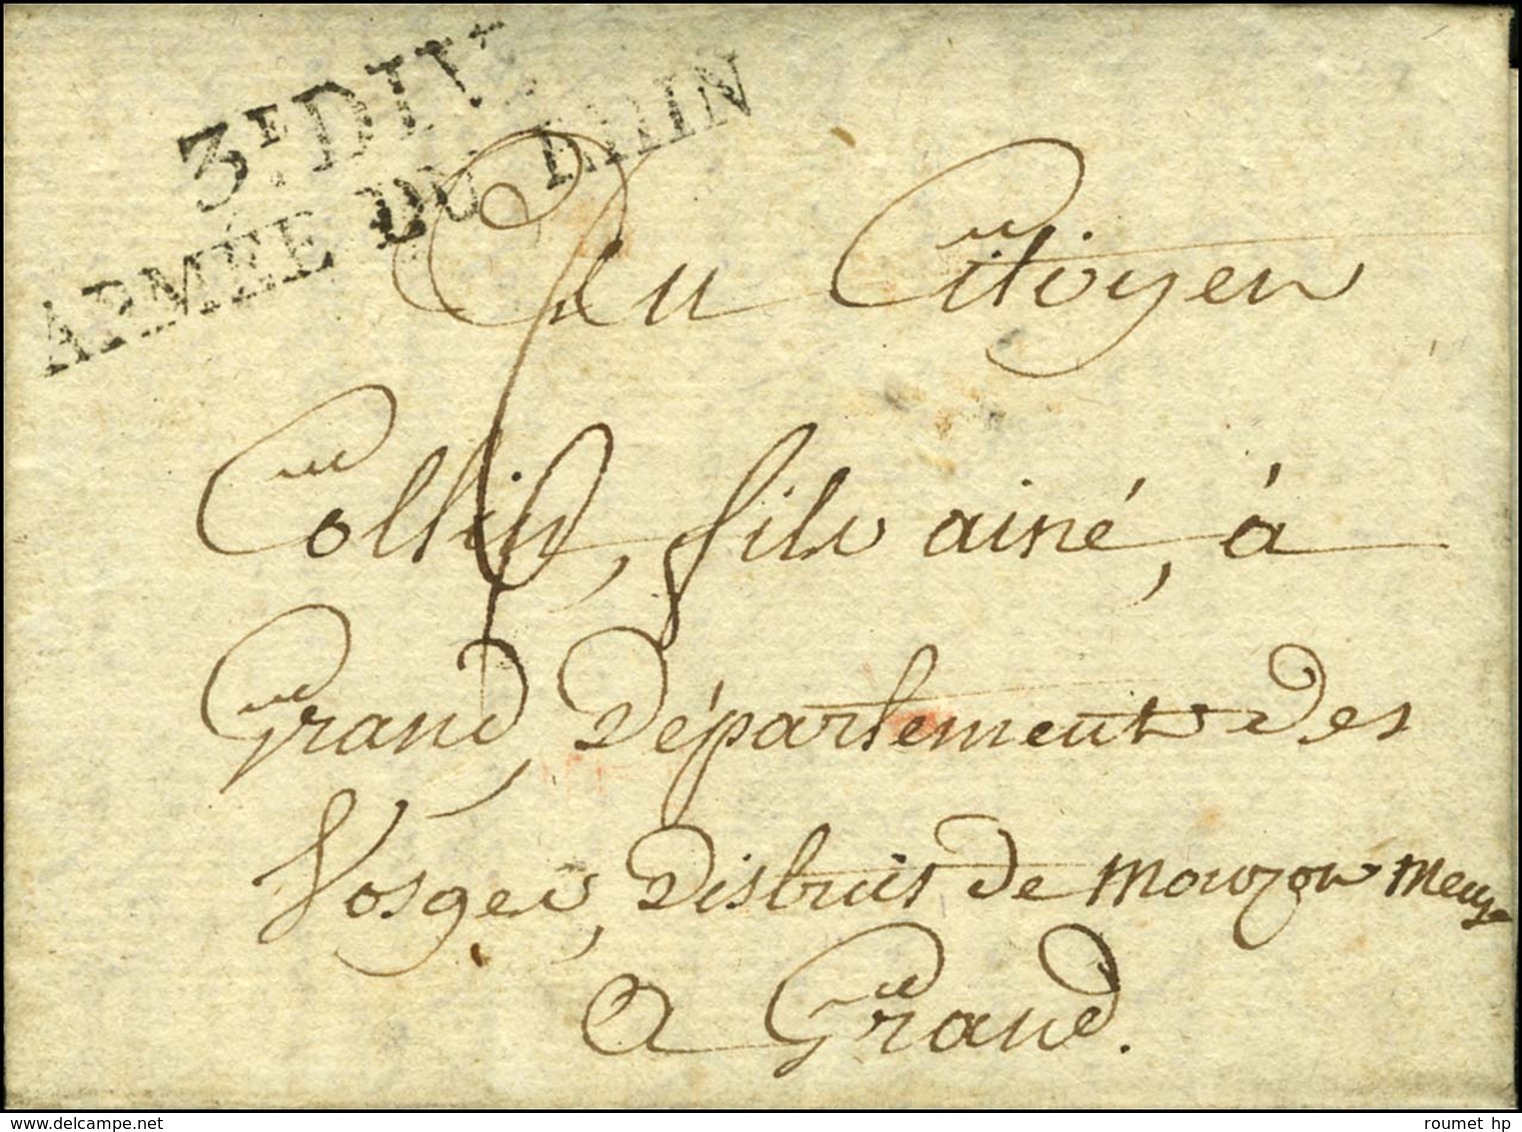 3E DIV
ARMÉE DU RHIN
Au Citoyen
Collin, fils ainé, à
Grand, Département des
Vosges, District de Mouzon Meuse
a Grand.
delcampe.net
roumet hp